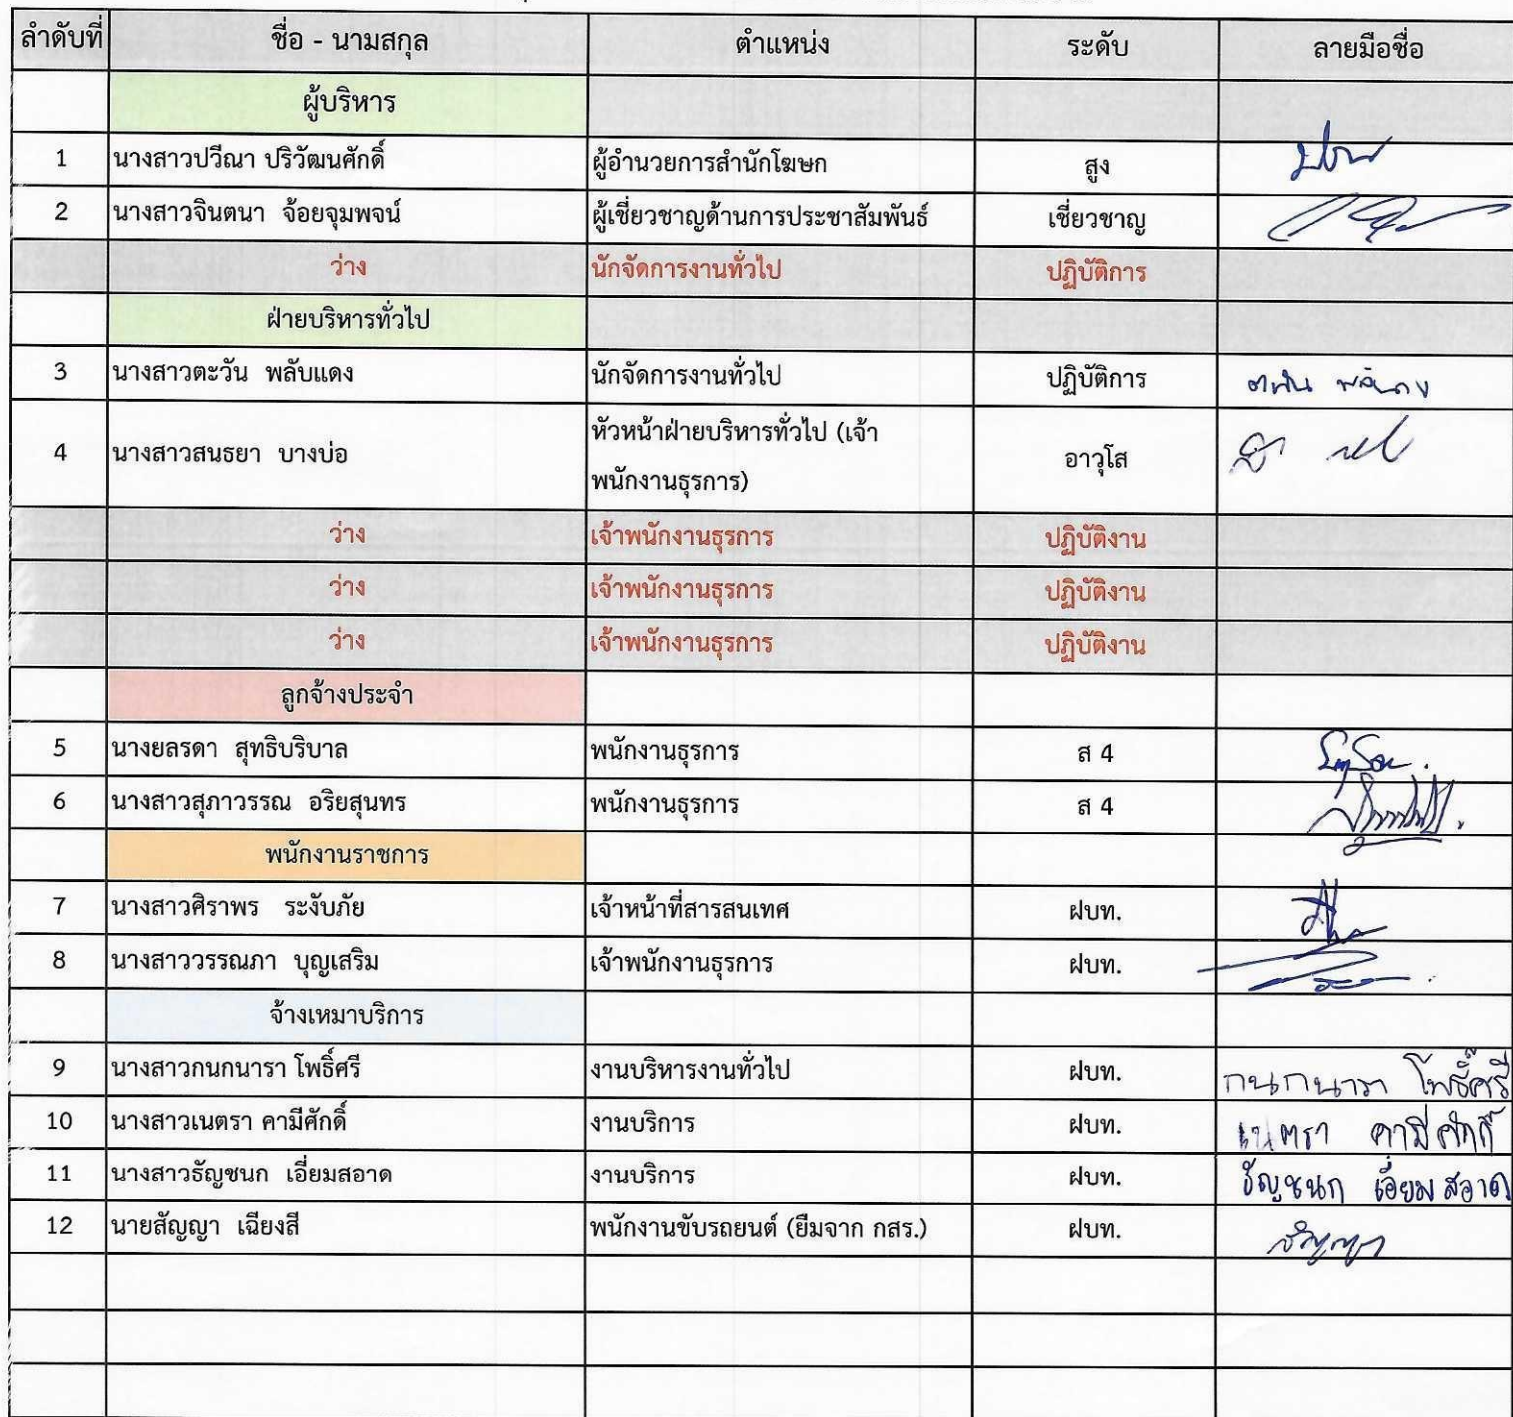 ลำดับที่ ชื่อ - นามสกุล ตำแหน่ง ระดับ ลายมือชื่อ
ผู้บริหาร
1 นางสาวปวีณา ปริวัฒนศักดิ์ ผู้อำนวยการสำนักโฆษก สูง
2 นางสาวจินตนา จ้อยจุมพจน์ ผู้เชี่ยวชาญด้านการประชาสัมพันธ์ เชี่ยวชาญ
ว่าง นักจัดการงานทั่วไป ปฏิบัติการ
ฝ่ายบริหารทั่วไป
3 นางสาวตะวัน พลับแดง นักจัดการงานทั่วไป ปฏิบัติการ
4 นางสาวสนธยา บางบ่อ หัวหน้าฝ่ายบริหารทั่วไป (เจ้า
พนักงานธุรการ) อาวุโส
ว่าง เจ้าพนักงานธุรการ ปฏิบัติงาน
ว่าง เจ้าพนักงานธุรการ ปฏิบัติงาน
ว่าง เจ้าพนักงานธุรการ ปฏิบัติงาน
ลูกจ้างประจำ
5 นางยลรดา สุทธิบริบาล พนักงานธุรการ ส 4
6 นางสาวสุภาวรรณ อริยสุนทร พนักงานธุรการ ส 4
พนักงานราชการ
7 นางสาวศิราพร ระงับภัย เจ้าหน้าที่สารสนเทศ ฝบท.
8 นางสาววรรณภา บุญเสริม เจ้าพนักงานธุรการ ฝบท.
จ้างเหมาบริการ
9 นางสาวกนกนารา โพธิ์ศรี งานบริหารงานทั่วไป ฝบท. กนกนารา โพธิ์ศรี
10 นางสาวเนตรา คามีศักดิ์ งานบริการ ฝบท. เนตรา คามีศักดิ์
11 นางสาวธัญชนก เอี่ยมสอาด งานบริการ ฝบท. ธัญชนก เอี่ยมสอาด
12 นายสัญญา เฉียงสี พนักงานขับรถยนต์ (ยืมจาก กสร.) ฝบท. สัญญา